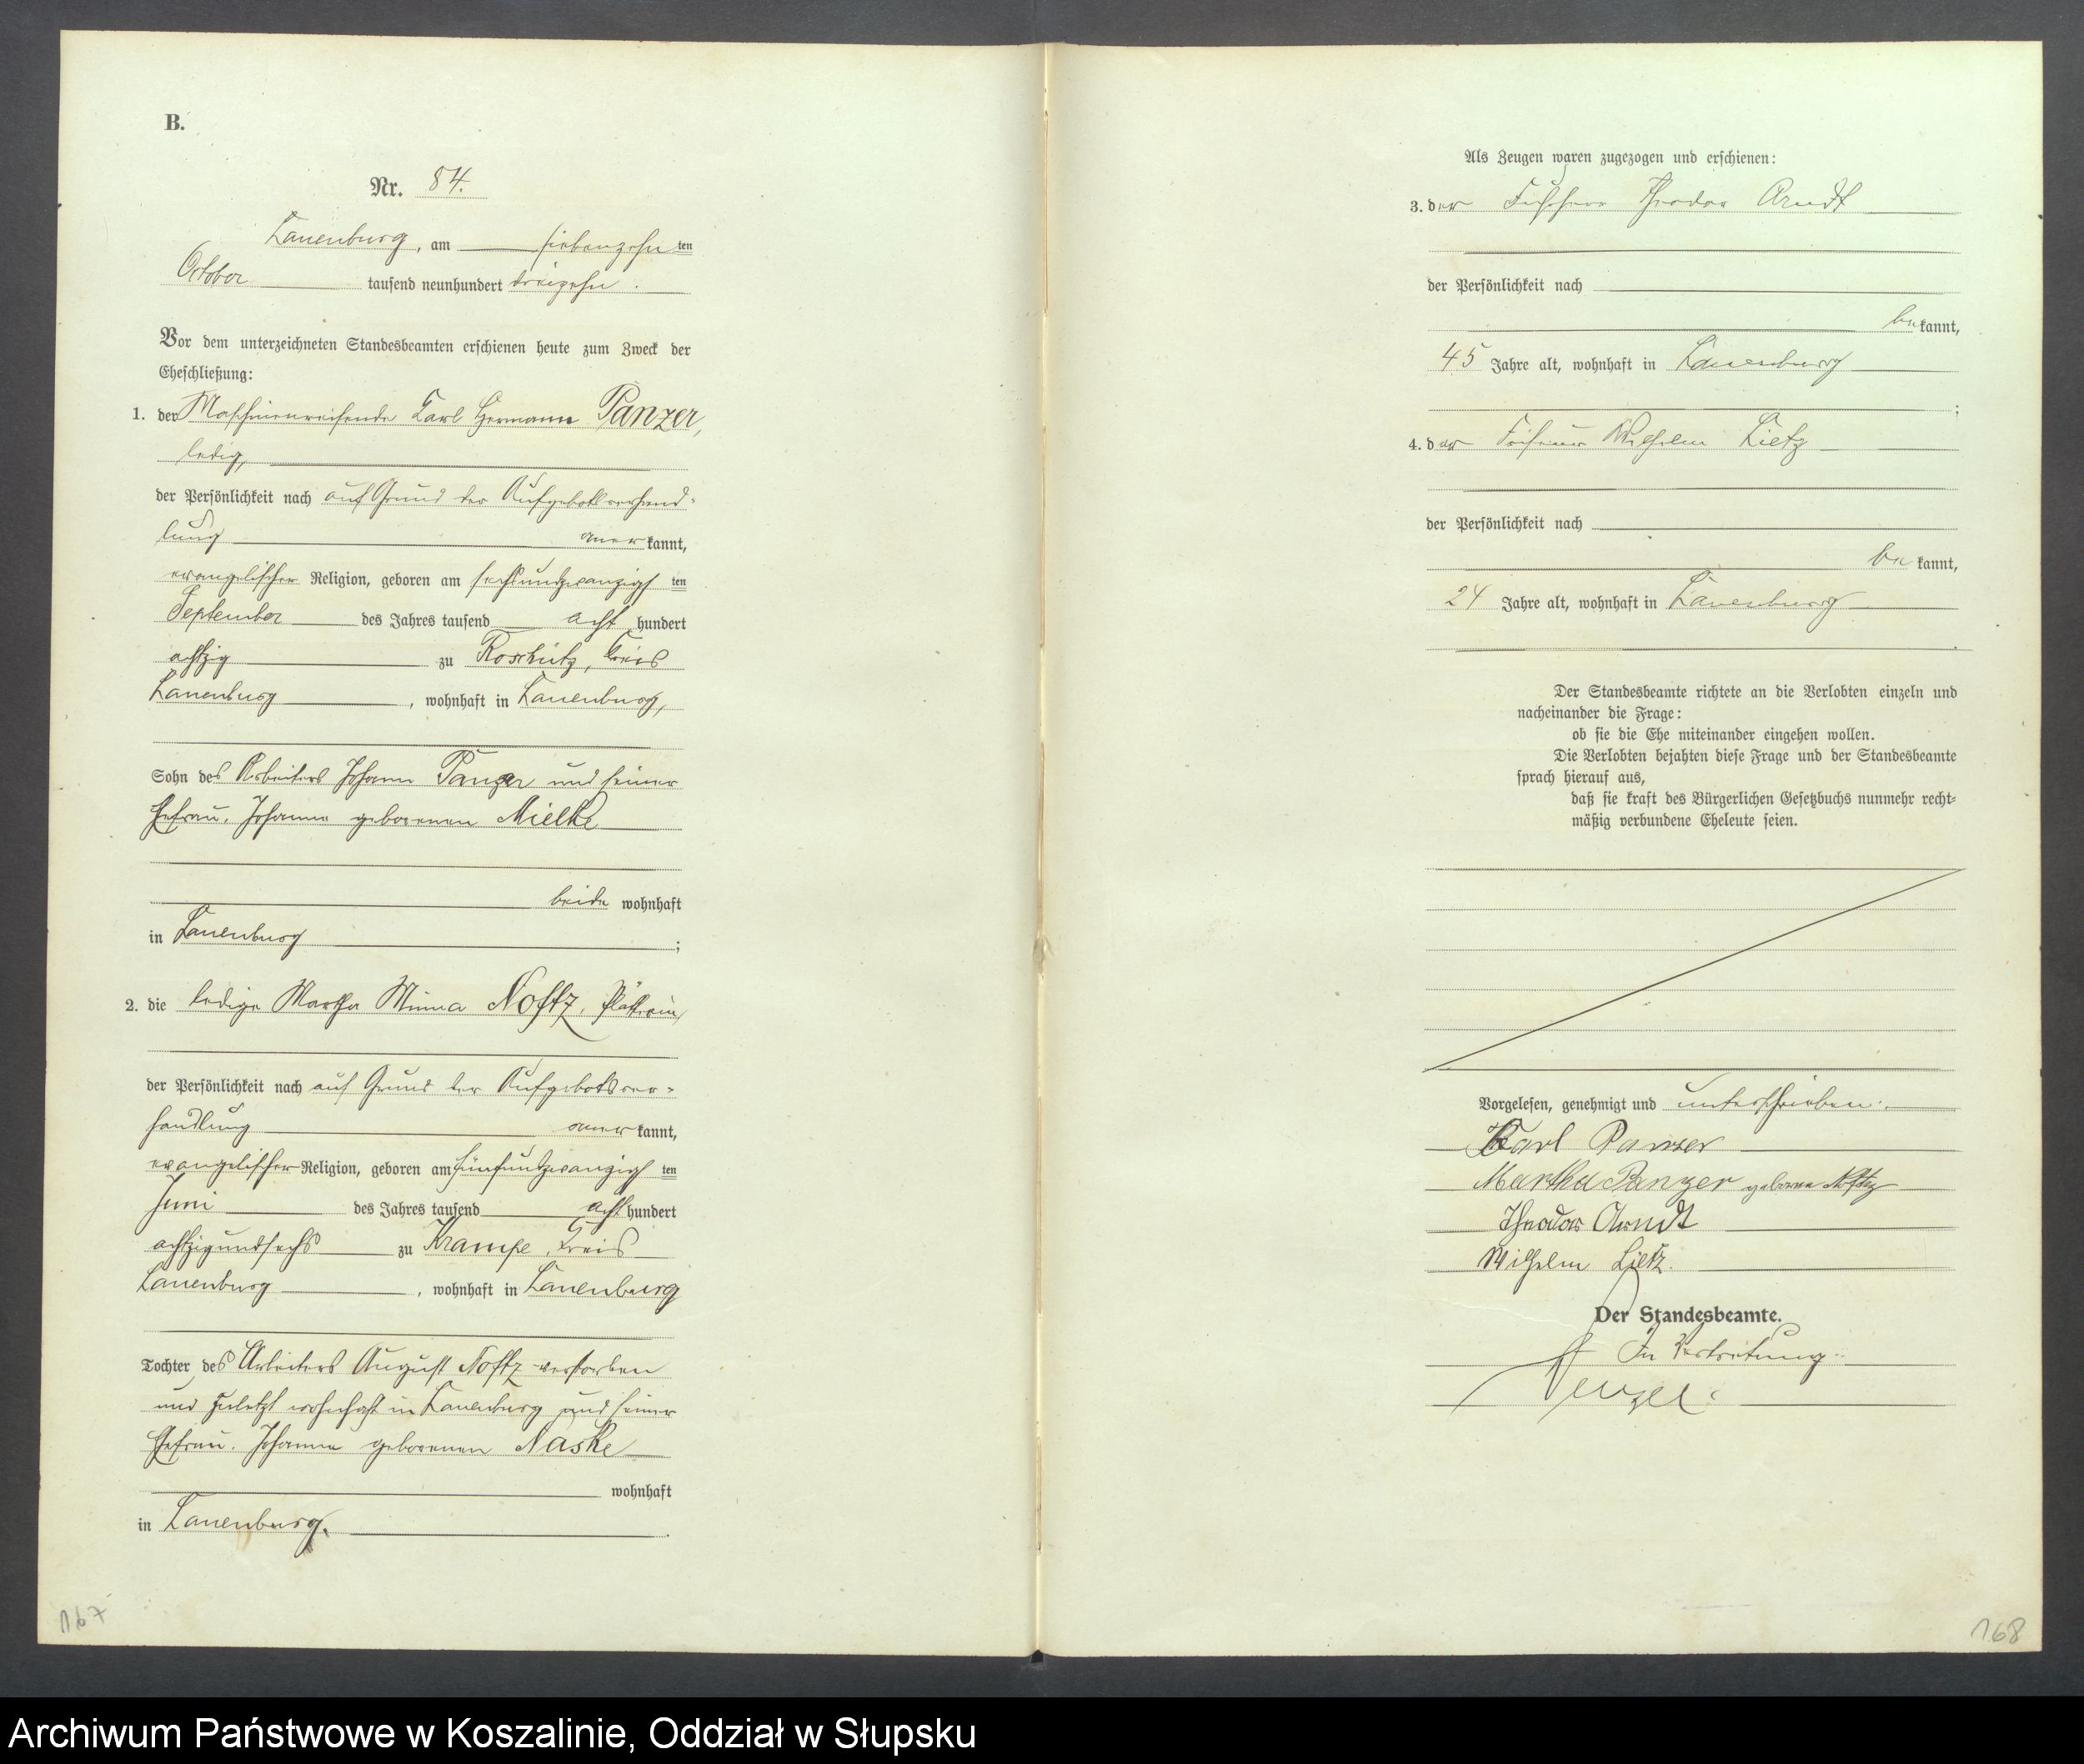 B.
Nr. 84.
Lauenburg, am siebenzehnten
October tausend neunhundert dreizehn.
Vor dem unterzeichneten Standesbeamten erschienen heute zum Zweck der
Eheschließung:
1. der Maschinenreisende Karl Hermann Panzer,
ledig,
der Persönlichkeit nach auf Grund der Aufgebotsverhand-
lung anerkannt,
evangelischer Religion, geboren am sechsundzwanzigsten
September des Jahres tausend acht hundert
achtzig zu Roschütz, Kreis
Lauenburg, wohnhaft in Lauenburg,
Sohn des Arbeiters Johann Panzer und seiner
Ehefrau, Johanne geborenen Mielke
beide wohnhaft
in Lauenburg;
2. die ledige Martha Minna Noffz, Plätterin,
der Persönlichkeit nach auf Grund der Aufgebotsver-
handlung anerkannt,
evangelischer Religion, geboren am fünfundzwanzigsten
Juni des Jahres tausend acht hundert
achtzigundsechs zu Krampe, Kreis
Lauenburg, wohnhaft in Lauenburg
Tochter des Arbeiters August Noffz verstorben
und zuletzt wohnhaft in Lauenburg und seiner
Ehefrau, Johanne geborenen Naske
wohnhaft
in Lauenburg.
167
Als Zeugen waren zugezogen und erschienen:
3. der Fuhrherr Theodor Arndt
der Persönlichkeit nach
bekannt,
45 Jahre alt, wohnhaft in Lauenburg
;
4. der Friseur Wilhelm Lietz
der Persönlichkeit nach
bekannt,
24 Jahre alt, wohnhaft in Lauenburg
.
Der Standesbeamte richtete an die Verlobten einzeln und
nacheinander die Frage:
ob sie die Ehe miteinander eingehen wollen.
Die Verlobten bejahten diese Frage und der Standesbeamte
sprach hierauf aus,
daß sie kraft des Bürgerlichen Gesetzbuchs nunmehr recht-
mäßig verbundene Eheleute seien.
Vorgelesen, genehmigt und unterschrieben.
Karl Panzer
Martha Panzer geborene Noffz
Theodor Arndt
Wilhelm Lietz.
Der Standesbeamte.
In Vertretung.
168
Archiwum Państwowe w Koszalinie, Oddział w Słupsku